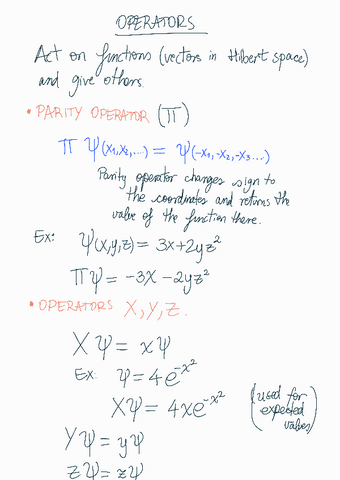 OPERATORS
Act on functions (vectors in Hilbert space)
and give others.
• PARITY OPERATOR (Π)
Π Ψ(x₁,x₂,...) = Ψ(-x₁,-x₂,-x₃...)
Parity operator changes sign to
the coordinates and returns the
value of the function there.
Ex: Ψ(x,y,z) = 3x+2yz²
ΠΨ = -3x -2yz²
• OPERATORS X, Y, Z.
XΨ = xΨ
Ex: Ψ = 4e^(-x²)
XΨ = 4xe^(-x²)
(used for
expected
values)
YΨ = yΨ
ZΨ = zΨ